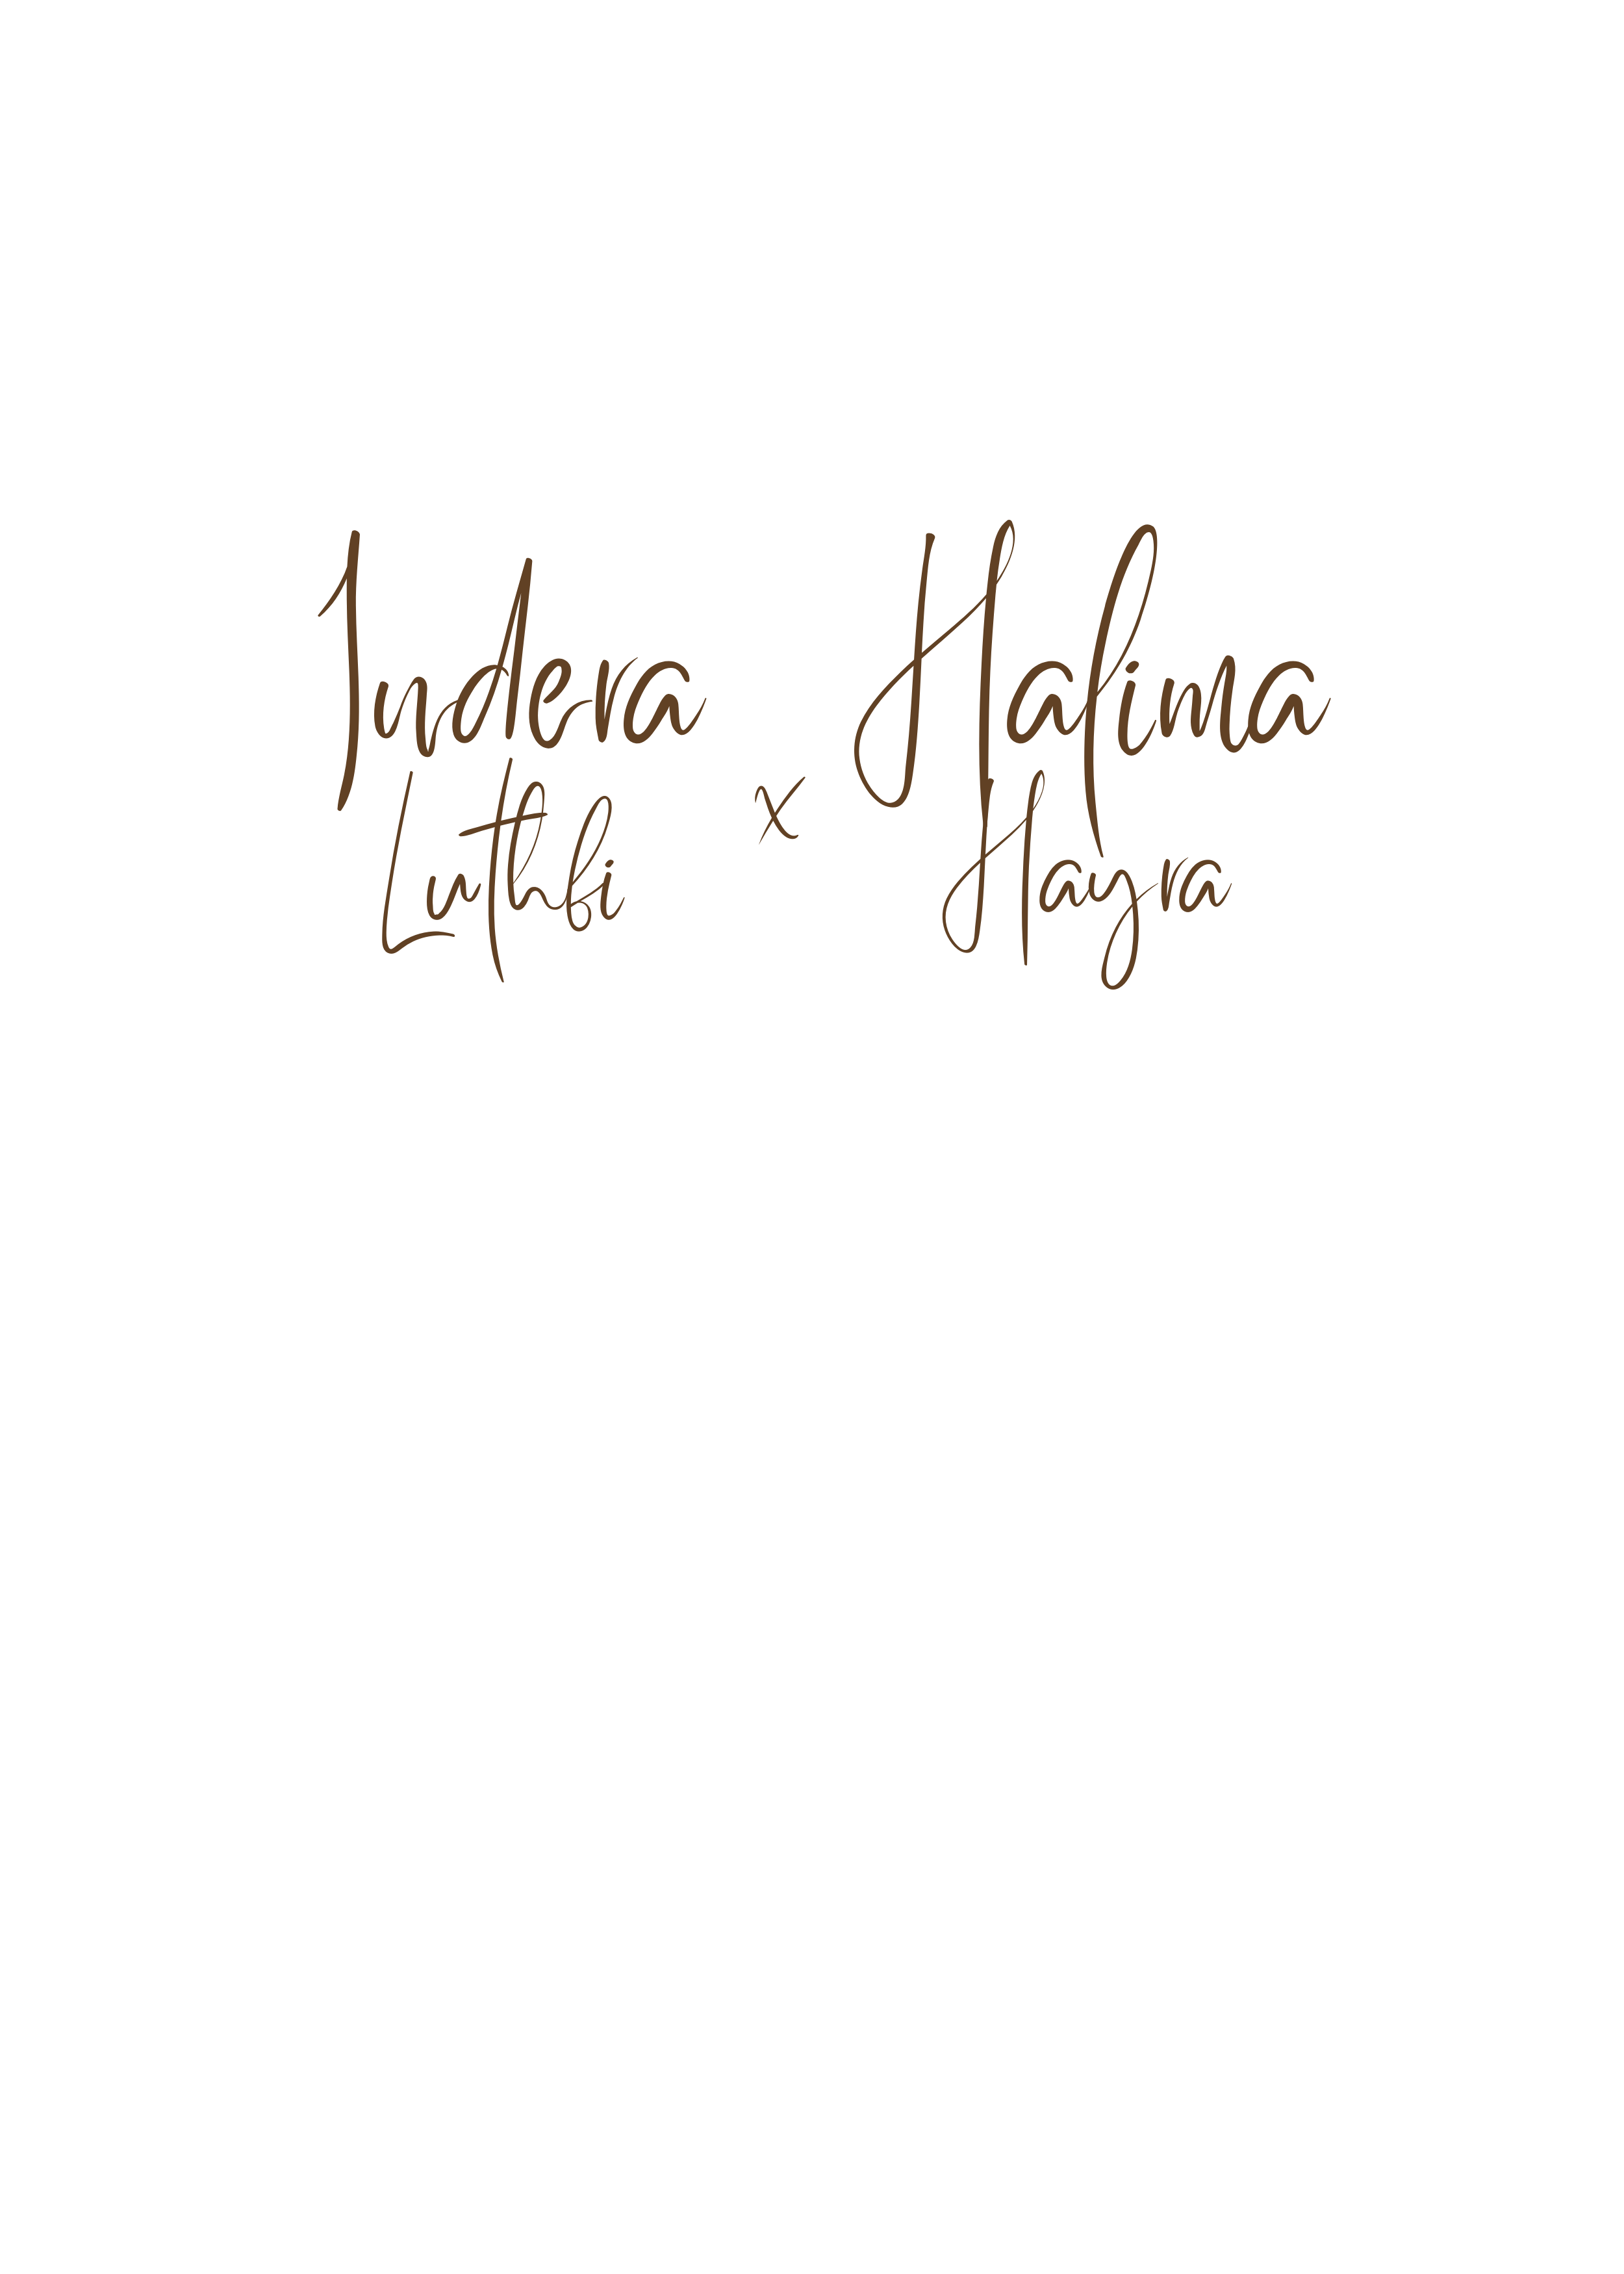 Indera
Luthfi
x
Halina
Hayra